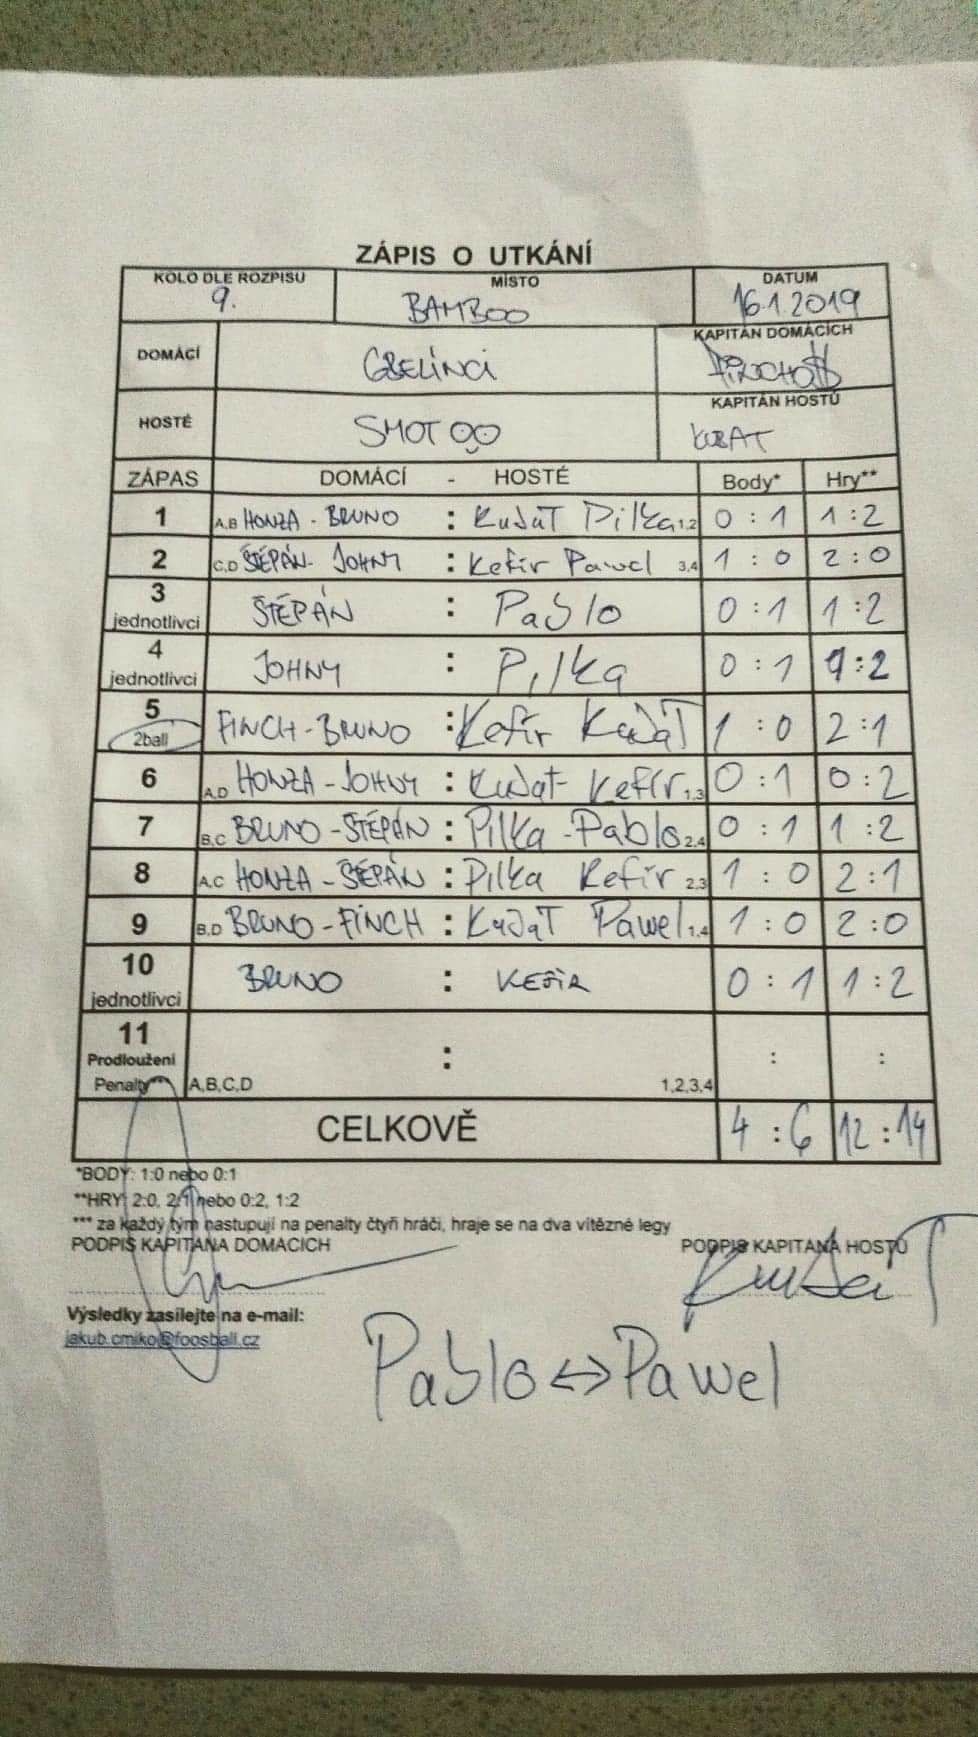 ZÁPIS O UTKÁNÍ
KOLO DLE ROZPISU MÍSTO DATUM
9. BAMBOO 16.1.2019
DOMÁCÍ GBELÍNCI KAPITÁN DOMÁCÍCH
HOSTÉ SMOTOO KAPITÁN HOSTŮ
KUBAT
ZÁPAS DOMÁCÍ - HOSTÉ Body* Hry**
1 A,B HONZA - BRUNO : Kubát Pilka 1,2 0 : 1 1 : 2
2 C,D ŠTĚPÁN - JOHNY : Kefír Pawel 3,4 1 : 0 2 : 0
3 jednotlivci ŠTĚPÁN : Pablo 0 : 1 1 : 2
4 jednotlivci JOHNY : Pilka 0 : 1 1 : 2
5 2ball FINCH - BRUNO : Kefír Kubát 1 : 0 2 : 1
6 A,D HONZA - JOHNY : Kubát - Kefír 1,3 0 : 1 0 : 2
7 B,C BRUNO - ŠTĚPÁN : Pilka - Pablo 2,4 0 : 1 1 : 2
8 A,C HONZA - ŠTĚPÁN : Pilka Kefír 2,3 1 : 0 2 : 1
9 B,D BRUNO - FINCH : Kubát Pawel 1,4 1 : 0 2 : 0
10 jednotlivci BRUNO : KEFÍR 0 : 1 1 : 2
11 Prodloužení Penalty*** A,B,C,D : 1,2,3,4 : :
CELKOVĚ 4 : 6 12 : 14
*BODY: 1:0 nebo 0:1
**HRY: 2:0, 2:1 nebo 0:2, 1:2
*** za každý tým nastupují na penalty čtyři hráči, hraje se na dva vítězné legy
PODPIS KAPITÁNA DOMÁCÍCH PODPIS KAPITÁNA HOSTŮ
Výsledky zasílejte na e-mail:
jakub.cmiko@foosball.cz
Pablo <-> Pawel